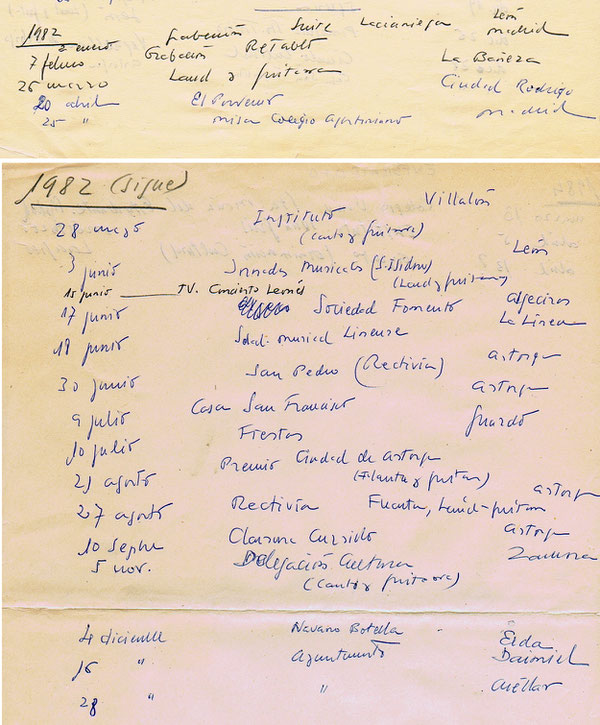 1982
2 enero Grabación Suite Lacianiega León
7 febrero Grabación Retablo madrid
26 marzo Laud y guitarra La Bañeza
20 abril El Porvenir Ciudad Rodrigo
25 " misa Colegio Agustiniano madrid
1982 (sigue)
28 mayo Instituto Villalón
(canto y guitarra)
3 junio Jornadas musicales (S. Isidoro) León
(Laud y guitarra)
15 junio TV. Concierto Leonés
17 junio Sociedad Fomento Algeciras
18 junio Sdad. musical Linense La Línea
30 junio San Pedro (Rectivía) astorga
9 julio Casa San Francisco astorga
10 julio Fiestas guardo
21 agosto Premio Ciudad de astorga
(Flauta y guitarra) astorga
27 agosto Rectivía Flauta, Laúd-guitarra
10 Sepbre Clausura Cursillo astorga
5 nov. Delegación Cultura Zamora
(canto y guitarra)
4 diciembre Navarro Botella Elda
16 " Ayuntamiento Daimiel
28 " " Cuéllar